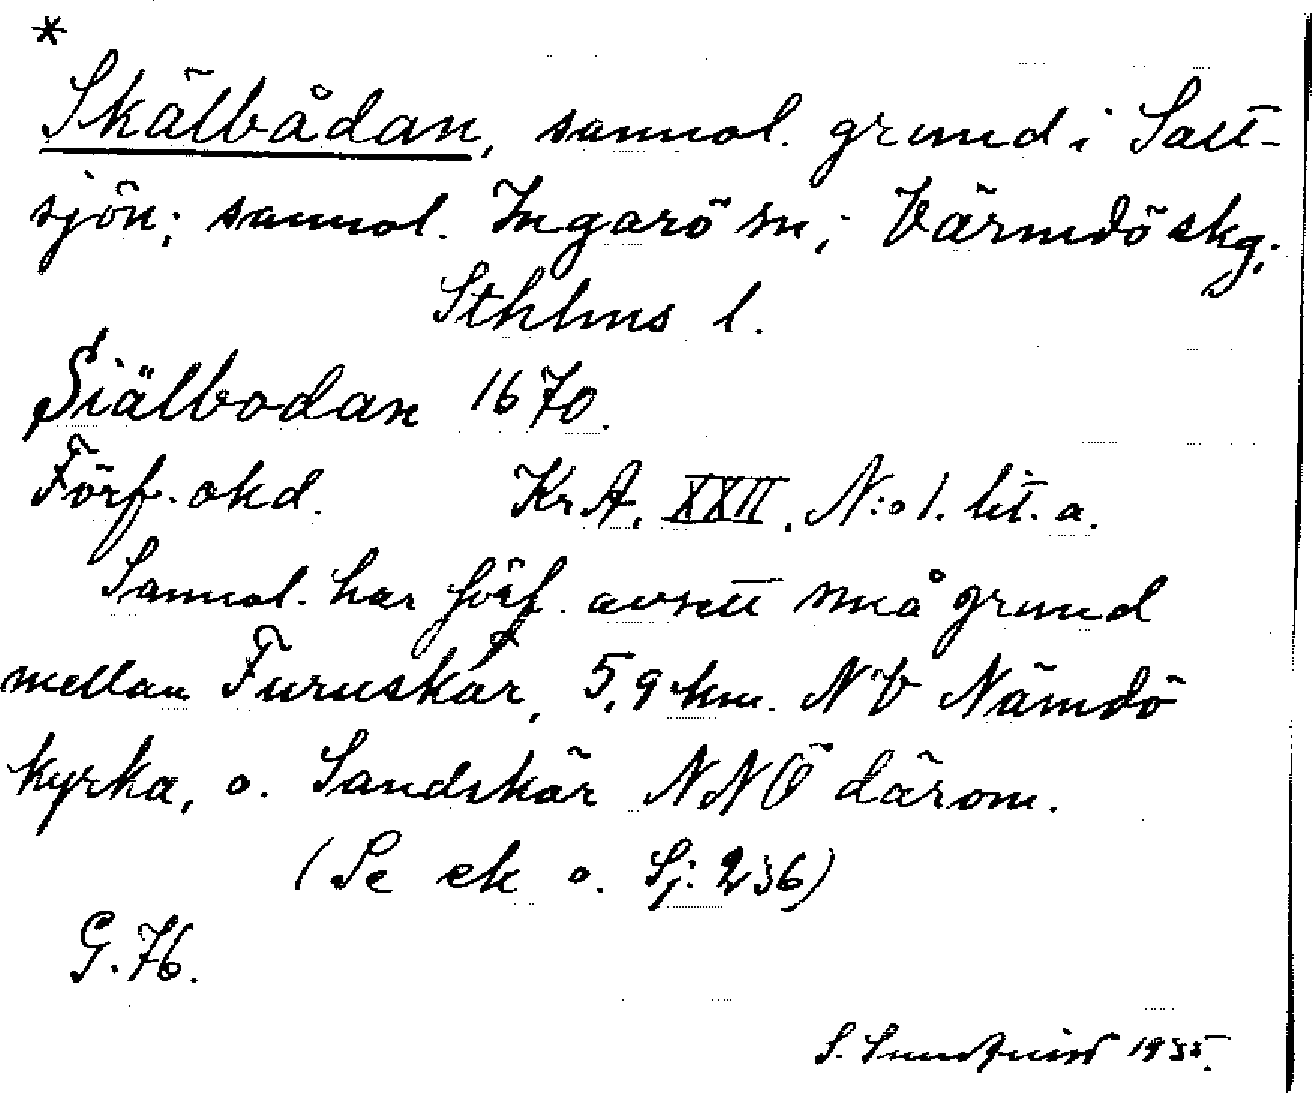 *
Skälbådan, sannol. grund i Salt-
sjön; sannol. Ingarö sn; Värmdö skg;
Sthlms l.
Siälbodan 1670.
Förf. okd. Kr.A. XXII. N:o 1. lit. a.
Sannol. har förf. avsett små grund
mellan Furuskär, 5,9 km. NV Nämdö
kyrka, o. Sandskär NNÖ därom.
(Se ek o. Sj. 236)
G. 76.
S. Sundquist 1935.